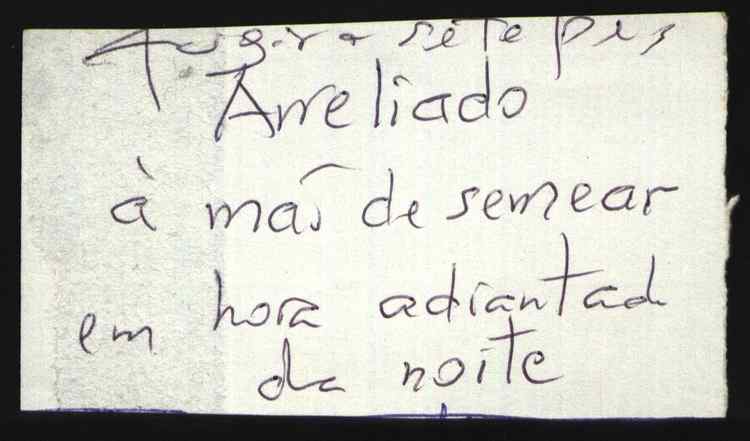 fugir a sete pés
Arreliado
à mão de semear
em hora adiantada
da noite